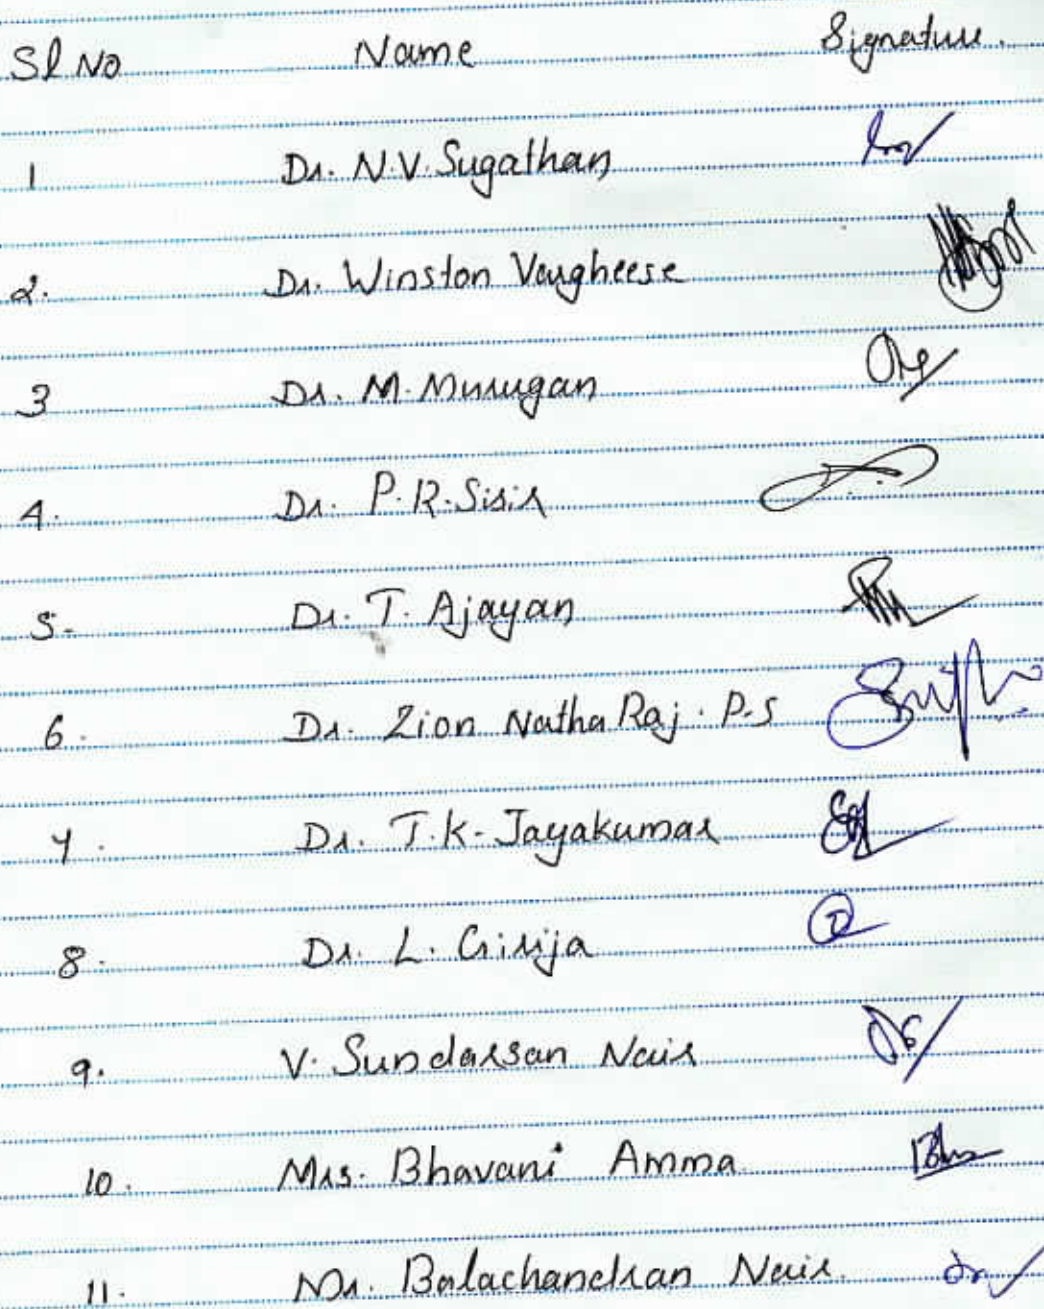 Sl No Name Signature.
1 Dr. N.V. Sugathan
2. Dr. Winston Vargheese
3 Dr. M. Murugan
4. Dr. P.R. Sisir
5. Dr. T. Ajayan
6. Dr. Zion Natha Raj. P.S
7. Dr. T.K. Jayakumar
8. Dr. L. Girija
9. V. Sundarsan Nair
10. Mrs. Bhavani Amma
11. Mr. Balachandran Nair.